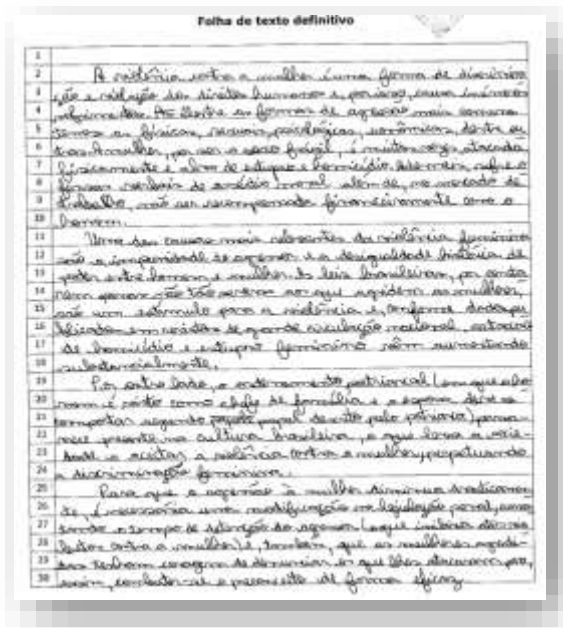 Folha de texto definitivo
1
2 A violência contra a mulher é uma forma de discrimina
3 ção e violação dos direitos humanos e, por isso, causa inúmeros
4 sofrimentos. Dentre as formas de agressão mais comuns
5 temos as físicas, sexuais, psicológicas, econômicas, dentre ou
6 tras. A mulher, por ser o sexo frágil, é muitas vezes atacada
7 fisicamente e alvo de estupro e homicídio. Ademais, sofre
8 formas verbais de assédio moral além de, no mercado de
9 trabalho, não ser recompensada financeiramente como o
10 homem.
11 Uma das causas mais relevantes da violência feminina
12 são a impunidade do agressor e a desigualdade histórica de
13 poder entre homens e mulheres. As leis brasileiras, por conta
14 rem penas não tão severas aos que agridem as mulheres,
15 são um estímulo para a violência e, conforme dados pu
16 blicados em revistas de grande circulação nacional, os casos
17 de homicídio e estupro feminino vêm aumentando
18 substancialmente.
19 Por outro lado, o ordenamento patriarcal (em que o ho
20 mem é visto como chefe de família e a esposa deve se
21 comportar segundo papel descrito pelo patriarca) perma
22 nece presente na cultura brasileira, o que leva a socie
23 dade a aceitar a violência contra a mulher, perpetuando
24 a discriminação feminina.
25 Para que a agressão à mulher diminua drasticamen
26 te, é necessária uma modificação na legislação penal, aumen
27 tando o tempo de detenção do agressor (o que inibiria
28 contra a mulher) e, também, que as mulheres agredi
29 das tenham coragem de denunciar os que lhes atacaram para,
30 assim, combater-se o preconceito de forma eficaz.